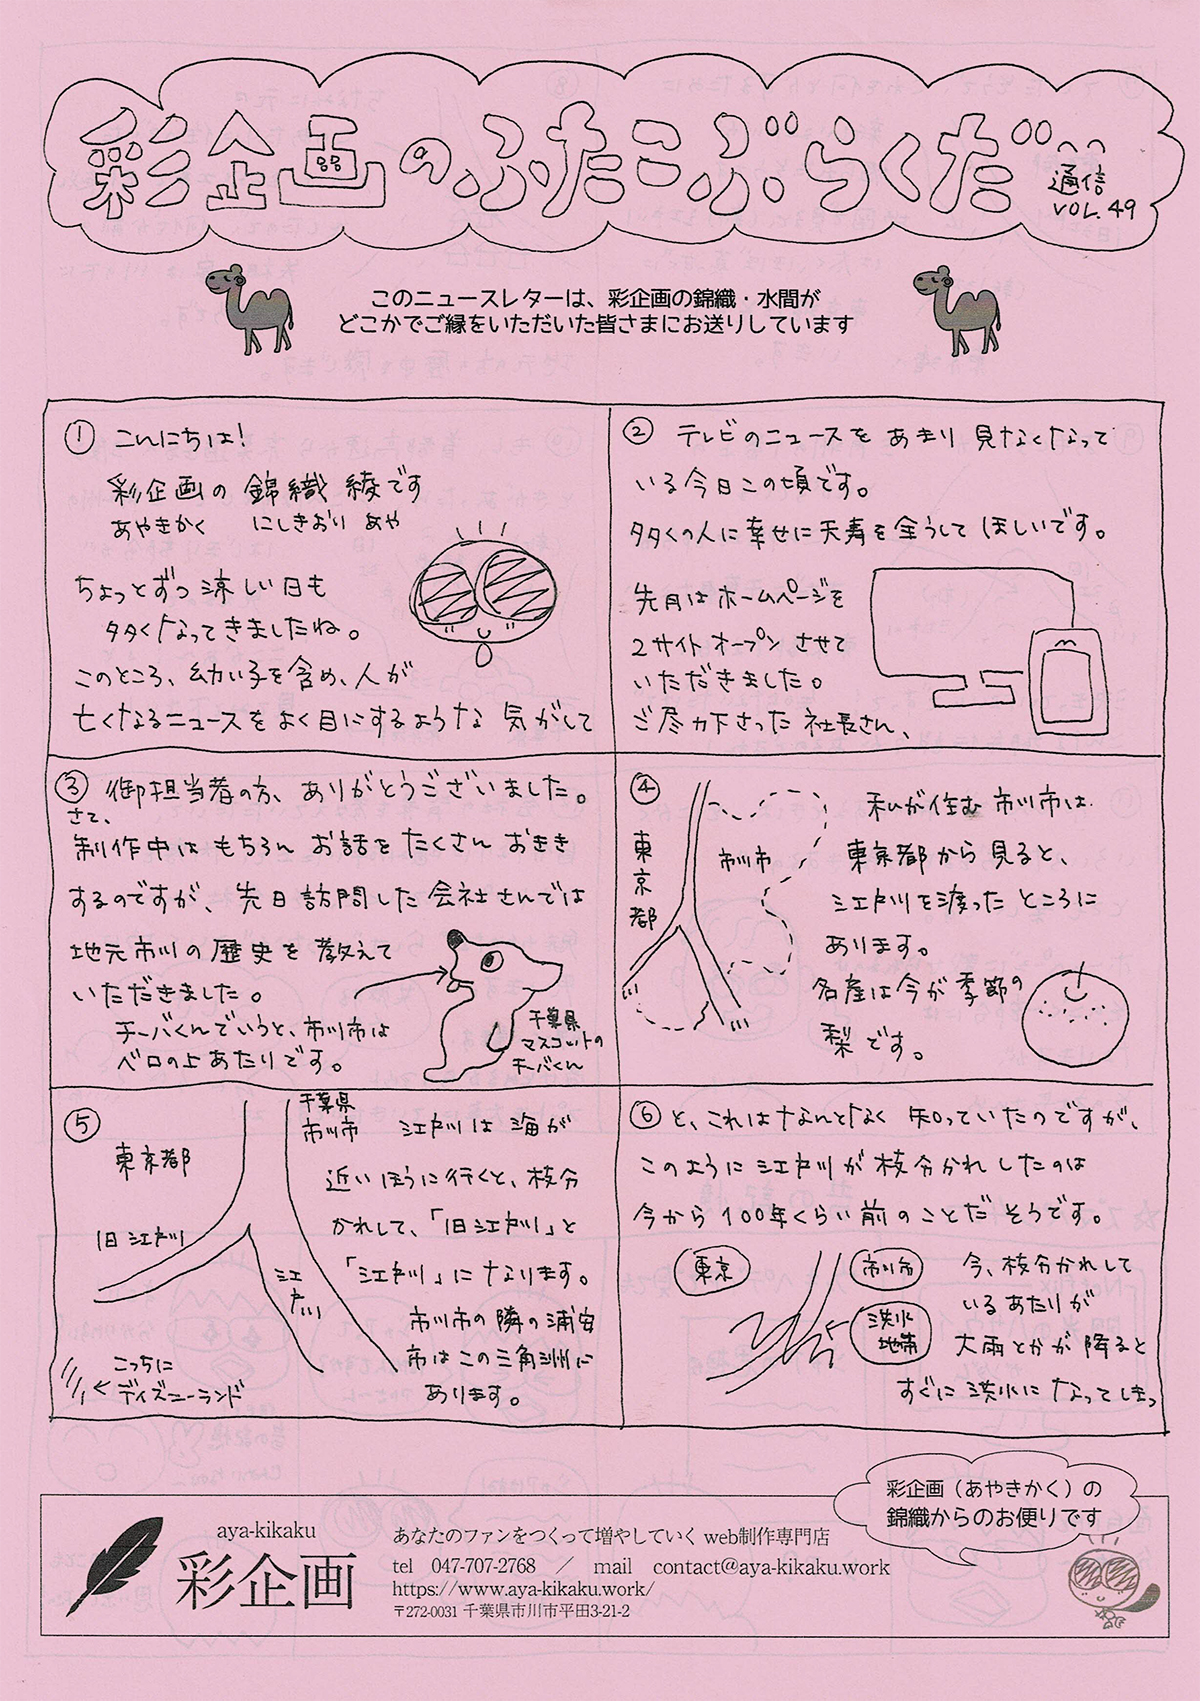 彩企画のふたこぶらくだ
通信
VOL.49
このニュースレターは、彩企画の錦織・水間が
どこかでご縁をいただいた皆さまにお送りしています
① こんにちは!
彩企画の 錦織 綾です
あやきかく にしきおり あや
ちょっとずつ 涼しい日も
多くなってきましたね。
このところ、幼い子を含め、人が
亡くなるニュースをよく目にするような 気がして
② テレビのニュースを あまり 見なくなって
いる今日この頃です。
多くの人に幸せに天寿を全うして ほしいです。
先月は ホームページを
2サイト オープン させて
いただきました。
ご尽力下さった 社長さん、
③ 御担当者の方、ありがとうございました。
さて、
制作中は もちろん お話を たくさん おきき
するのですが、先日訪問した会社さんでは
地元市川の歴史を 教えて
いただきました。
チーバくんでいうと、市川市は
ベロの上あたりです。
千葉県
マスコットの
チーバくん
④
東京都
市川市
私が住む 市川市は
東京都から 見ると、
江戸川を渡った ところに
あります。
名産は今が季節の
梨です。
⑤
東京都
千葉県
市川市
旧江戸川
江戸川
こっちに
ディズニーランド
江戸川は 海が
近い ほうに 行くと、枝分
かれして、「旧江戸川」と
「江戸川」に なります。
市川市の 隣の 浦安
市は この 三角洲に
あります。
⑥ と、これは なんとなく 知っていたのですが、
このように 江戸川が 枝分かれ したのは
今から 100年くらい 前のことだ そうです。
東京
市川市
洪水
地帯
今、枝分かれして
いるあたりが
大雨とかが 降ると
すぐに 洪水に なってしまっ
彩企画(あやきかく)の
錦織からのお便りです
aya-kikaku
彩企画
あなたのファンをつくって増やしていく web制作専門店
tel 047-707-2768 / mail contact@aya-kikaku.work
https://www.aya-kikaku.work/
〒272-0031 千葉県市川市平田3-21-2